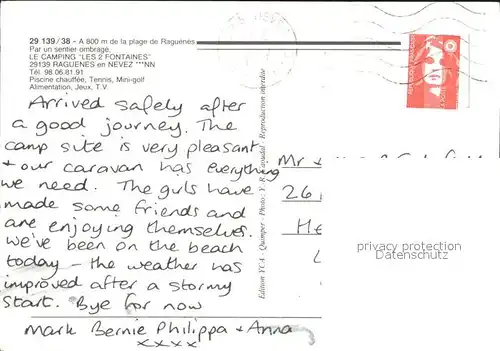 29 139/38 - A 800 m de la plage de Raguénès
Par un sentier ombragé,
LE CAMPING "LES 2 FONTAINES"
29139 RAGUENES en NEVEZ ***NN
Tél. 98.06.81.91
Piscine chauffée, Tennis, Mini-golf
Alimentation, Jeux, T.V.
Arrived safely after
a good journey. The
camp site is very pleasant
+ our caravan has everything
we need. The girls have
made some friends and
are enjoying themselves.
We've been on the beach
today - the weather has
improved after a stormy
start. Bye for now
Mark Bernie Philippa + Anna
xxxx
Edition YCA - Quimper - Photo : Y.R. Caoudal - Reproduction interdite
Mr +
26
He
privacy protection
Datenschutz